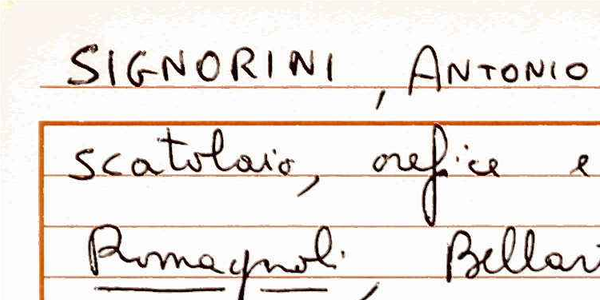 SIGNORINI, ANTONIO
scatolaio, orefice e
Romagnoli, Bellar